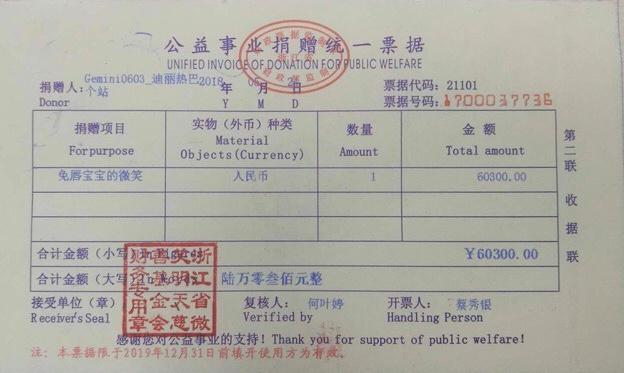 公益事业捐赠统一票据
UNIFIED INVOICE OF DONATION FOR PUBLIC WELFARE
捐赠人: Gemini0603_迪丽热巴个站 2018 年 05 月 日 票据代码: 21101
Donor Y M D 票据号码: 1700037736
捐赠项目 实物(外币)种类 数量 金额
For purpose Material Objects(Currency) Amount Total amount
兔唇宝宝的微笑 人民币 1 60300.00
合计金额(小写)In Figures ¥60300.00
合计金额(大写)In Words 陆万零叁佰元整
接受单位(章) 复核人: 何叶婷 开票人: 蔡秀银
Receiver's Seal Verified by Handling Person
感谢您对公益事业的支持! Thank you for support of public welfare!
注: 本票据限于2019年12月31日前填开使用方为有效。
第二联 收据联
浙江省微笑明天慈善基金会财务专用章